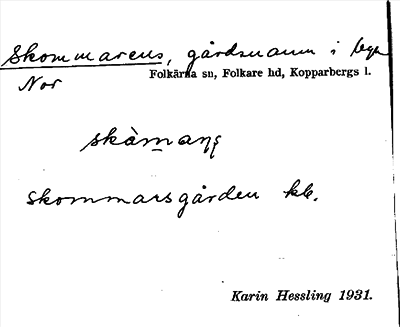 Skommarens, gårdsnamn i byn
Nor
Folkärna sn, Folkare hd, Kopparbergs l.
skommarsgården kb.
Karin Hessling 1931.